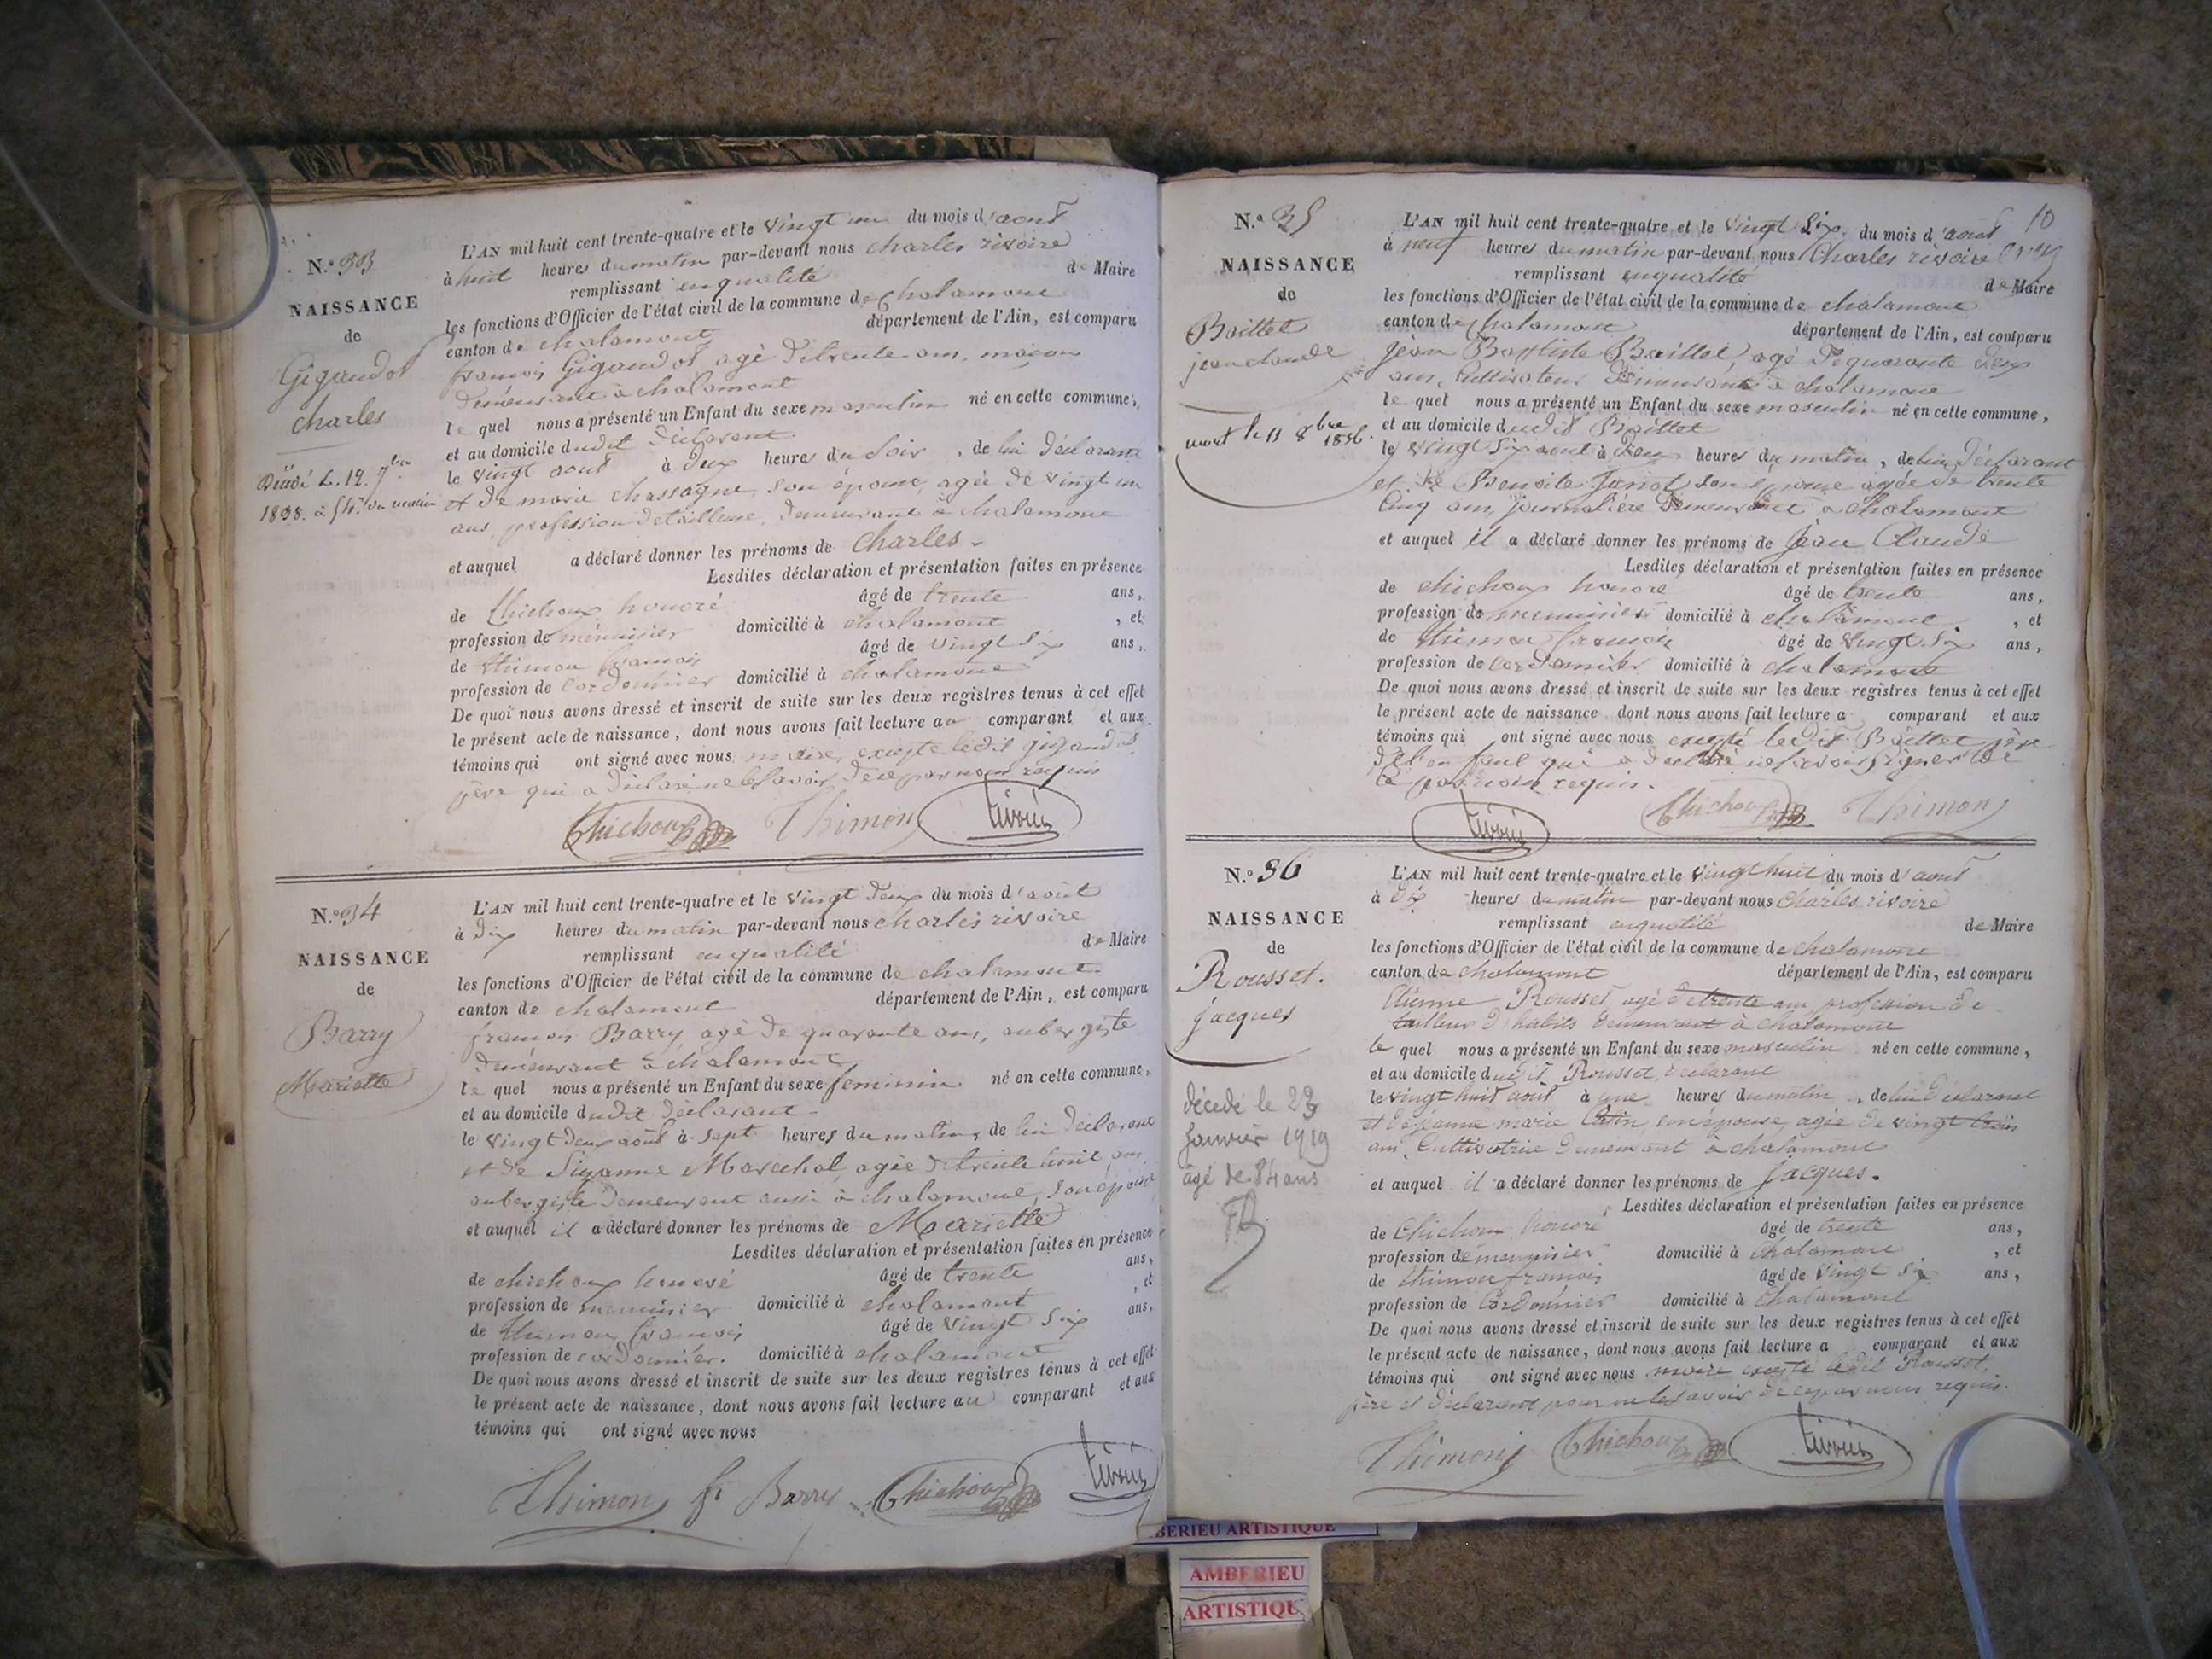 N.º 33
NAISSANCE
de
Gigandot
Charles
Décédé le 12 7bre
1838 à 5 h. du matin
L'AN mil huit cent trente-quatre et le vingt un du mois d'aout
à huit heures du matin par-devant nous Charles rivoire
remplissant enqualité de Maire
les fonctions d'Officier de l'état civil de la commune de chalamont
canton de chalamont département de l'Ain, est comparu
francois Gigandot, agé de trente ans, maçon
demeurant à chalamont
le quel nous a présenté un Enfant du sexe masculin né en cette commune,
et au domicile dudit déclarant
le vingt aout à deux heures du soir, de lui déclarant
et de marie chassagne, son épouse, agée de vingt un
ans, profession de tailleuse, demeurant à chalamont
et auquel a déclaré donner les prénoms de Charles.
Lesdites déclaration et présentation faites en présence
de Chichoux honoré âgé de trente ans,
profession de ménuisier domicilié à chalamont, et
de thimon francois âgé de vingt six ans,
profession de cordonnier domicilié à chalamont
De quoi nous avons dressé et inscrit de suite sur les deux registres tenus à cet effet
le présent acte de naissance, dont nous avons fait lecture au comparant et aux
témoins qui ont signé avec nous maire, excepte ledit gigandot
père qui a déclaré ne le savoir de ce par nous requis
Chichoux Thimon rivoire
N.º 34
NAISSANCE
de
Barry
Mariette
L'AN mil huit cent trente-quatre et le vingt deux du mois d'août
à dix heures du matin par-devant nous charles rivoire
remplissant enqualité de Maire
les fonctions d'Officier de l'état civil de la commune de chalamont
canton de chalamont département de l'Ain, est comparu
francois Barry, agé de quarante ans, aubergiste
demeurant à chalamont
le quel nous a présenté un Enfant du sexe feminin né en cette commune,
et au domicile dudit déclarant
le vingt deux août à sept heures du matin, de lui déclarant
et de Suzanne Marechal, agée de trente huit ans
aubergiste demeurant aussi à chalamont, son épouse
et auquel il a déclaré donner les prénoms de Mariette
Lesdites déclaration et présentation faites en présence
de chichoux honoré âgé de trente ans,
profession de menuisier domicilié à chalamont, et
de thimon francois âgé de vingt six ans,
profession de cordonnier. domicilié à chalamont
De quoi nous avons dressé et inscrit de suite sur les deux registres tenus à cet effet
le présent acte de naissance, dont nous avons fait lecture au comparant et aux
témoins qui ont signé avec nous
Thimon fs Barry Chichoux rivoire
10
N.º 35
NAISSANCE
de
Baillet
jean claude
mort le 11 8bre 1836.
L'AN mil huit cent trente-quatre et le vingt Six du mois d'aout
à neuf heures du matin par-devant nous Charles rivoire
remplissant enqualité de Maire
les fonctions d'Officier de l'état civil de la commune de chalamont
canton de chalamont département de l'Ain, est comparu
jean Baptiste Baillet agé de quarante deux
ans, Cultivateur Demeurant à chalamont
le quel nous a présenté un Enfant du sexe masculin né en cette commune,
et au domicile dudit Baillet
le vingt Six aout à deux heures du matin, de lui Déclarant
et de Benoite Junot son épouse agée de trente
cinq ans, journalière Demeurant à chalamont
et auquel il a déclaré donner les prénoms de jean Claude
Lesdites déclaration et présentation faites en présence
de chichoux honoré âgé de trente ans,
profession de menuisier domicilié à chalamont, et
de thimon francois âgé de vingt six ans,
profession de cordonnier domicilié à chalamont
De quoi nous avons dressé et inscrit de suite sur les deux registres tenus à cet effet
le présent acte de naissance dont nous avons fait lecture a comparant et aux
témoins qui ont signé avec nous excepté ledit Baillet père
de l'enfant qui a déclaré ne savoir signer de
ce par nous requis.
rivoire Chichoux Thimon
N.º 36
NAISSANCE
de
Rousset.
jacques
décédé le 23
Janvier 1919
âgé de 84 ans
L'AN mil huit cent trente-quatre et le vingt huit du mois d'aout
à dix heures du matin par-devant nous Charles rivoire
remplissant enqualité de Maire
les fonctions d'Officier de l'état civil de la commune de chalamont
canton de chalamont département de l'Ain, est comparu
Etienne Rousset agé de trente ans, profession de
tailleur d'habits demeurant à chalamont
le quel nous a présenté un Enfant du sexe masculin né en cette commune,
et au domicile dudit Rousset, déclarant
le vingt huit août à une heures du matin, de lui déclarant
et de jeanne marie son épouse, agée de vingt trois
ans, Cultivatrice demeurant à chalamont
et auquel il a déclaré donner les prénoms de jacques.
Lesdites déclaration et présentation faites en présence
de Chichoux honoré âgé de trente ans,
profession de menuisier domicilié à chalamont, et
de thimon francois âgé de vingt six ans,
profession de Cordonnier domicilié à chalamont
De quoi nous avons dressé et inscrit de suite sur les deux registres tenus à cet effet
le présent acte de naissance, dont nous avons fait lecture a comparant et aux
témoins qui ont signé avec nous maire excepte ledit Rousset,
père et déclarant pour ne le savoir de ce par nous requis.
Thimon Chichoux rivoire
BERIEU ARTISTIQUE
AMBERIEU
ARTISTIQU